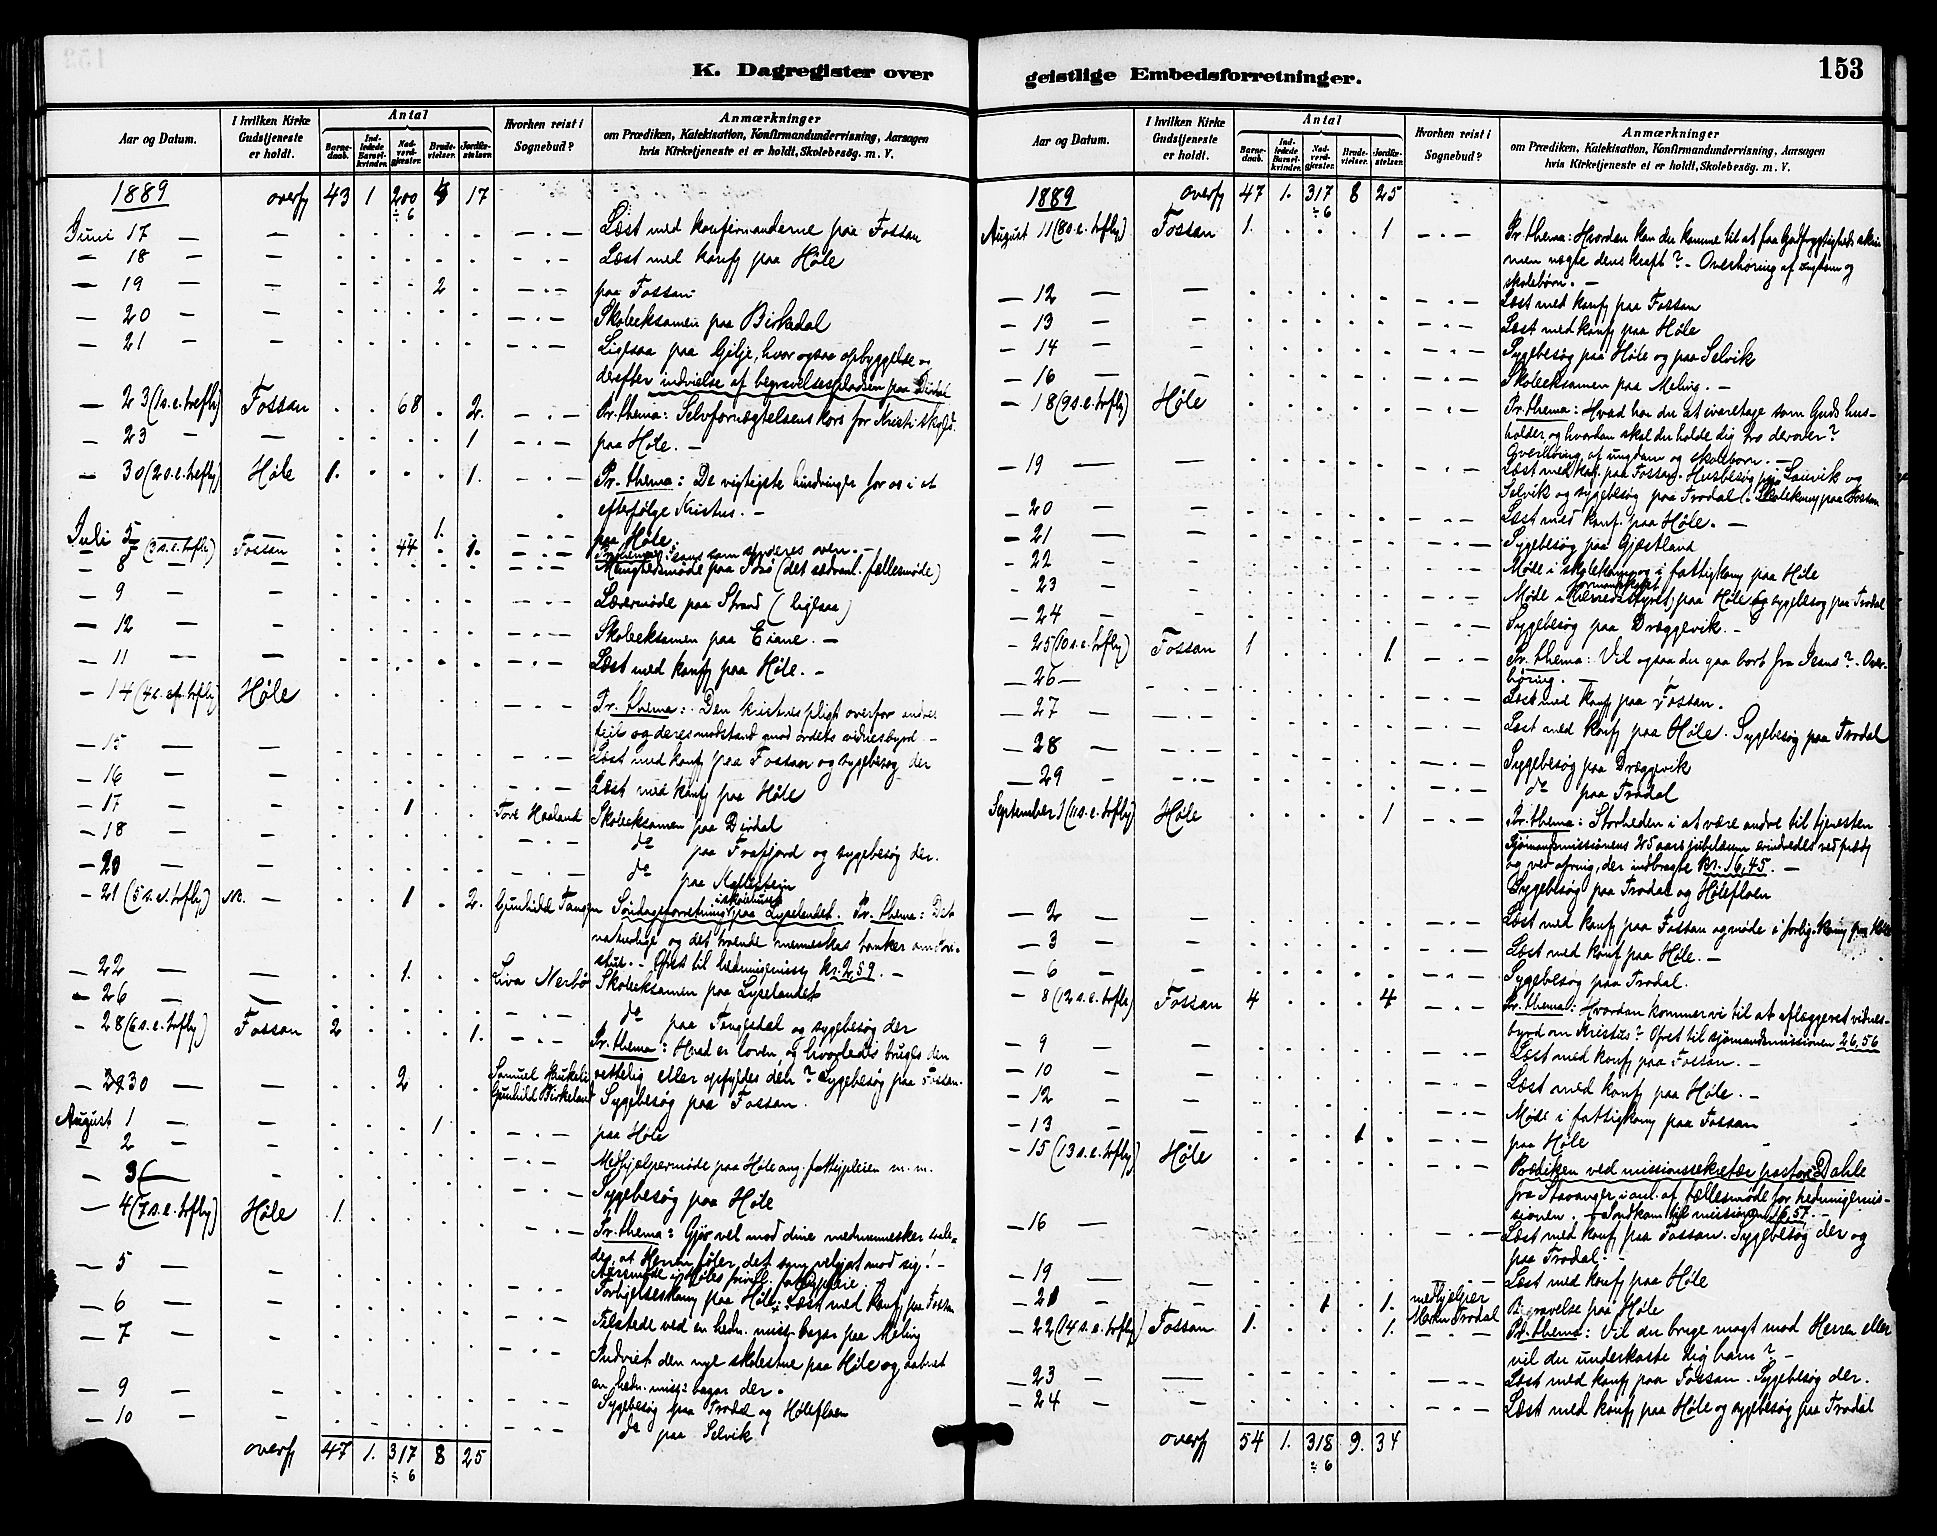 K. Dagregister over
Aar og Datum.
I hvilken Kirke Gudstjeneste er holdt.
Antal
Barnedaab.
Indledede Barselkvinder.
Nadverdgjæster.
Brudevielser.
Jordfæstelser.
Hvorhen reist i Sognebud?
Anmærkninger
om Prædiken, Katekisation, Konfirmandundervisning, Aarsagen
hvis Kirketjeneste ei er holdt, Skolebesøg. m. V.
1889 overf 43 1 200 17
÷ 6
Juni 17 — — Læst med konfirmanderne paa Fossan
— 18 — — Læst med konf paa Høle
— 19 — — 2 paa Fossan
— 20 — Skoleeksamen paa Birkedal
— 21 — Ligesaa paa Gilje, hvor ogsaa opbyggelse og
derefter indvielse af begravelsespladsen paa Dirdal
— 23 (1 s. e. trefty) Fossan 68 2. Pr. thema: Selvfornægtelsens kors for Kristi skyld.
— 23 — — 1 paa Høle. —
— 30 (2 s. e. trefty) Høle 1. 1. Pr. thema: De vigtigste hindringer for os i at
efterfølge Kristus. —
Juli 5 — 1. paa Høle.
— 7 (3 s. e. trefty) Fossan 44 1.
— 8 — — Menighedsmøde paa Idsø (det sædvanl. fællesmøde)
— 9 — — Lærermøde paa Strand (ligesaa)
— 12 — — Skoleeksamen paa Eiane. —
— 11 — — Læst med konf paa Høle. —
— 14 (4 s. ef. trefty) Høle Pr. thema: Den kristnes pligt overfor andres
feil og deres modstand mod ordets vidnesbyrd —
— 15 — — Læst med konf paa Fossan og sygebesøg der
— 16 — — Læst med konf paa Høle
— 17 — — 1 Tore Haaland Skoleeksamen paa Dirdal
— 18 — — do paa Frafjord og sygebesøg der.
— 20 — do paa
— 21 (5 s. e. trefty) — 1 2. Gunhild Søndagsforretning i skolehuset paa Lyselandet. Pr. thema: Det
naturlige og det troende menneskes tanker om Kri-
stus. — Ofret til hedningemiss Kr. 2,59. —
— 22 — — 1. Liva Nerbø Skoleeksamen paa Lyselandet
— 26 — — do paa og sygebesøg der
— 28 (6 s. e. trefty) Fossan 2 1. Pr. thema: Hvad er loven, og hvorledes bruges den
rettelig eller opfyldes den? Sygebesøg paa Fossan.
— 30 — — 2 Samuel
Gunhild Birkeland Sygebesøg paa Fossan.
August 1 — — 1 paa Høle
— 2 — — Medhjelpermøde paa Høle ang. fattigpleien m. m.
— 3 — Sygebesøg paa Høle
— 4 (7 s. e. trefty) Høle 1. Pr. thema: Gjør vel mod dine medmennesker saale-
des, at Herren føler det som velgjort mod sig! —
— 5 — — Forligelseskom paa Høle. Læst med konf paa Fossan
— 6 — — Tilstede ved en hedn. miss. bazar paa Meling
— 7 — — Indviet den nye skolestue paa Høle og aabnet
en hedn. miss. bazar der.
— 9 — — Sygebesøg paa Trodal og Høleflaen
— 10 — — do paa Selvik
overf 47 1. 317 8 25
÷ 6
geistlige Embedsforretninger.
153
Aar og Datum.
I hvilken Kirke Gudstjeneste er holdt.
Antal
Barnedaab.
Indledede Barselkvinder.
Nadverdgjæster.
Brudevielser.
Jordfæstelser.
Hvorhen reist i Sognebud?
Anmærkninger
om Prædiken, Katekisation, Konfirmandundervisning, Aarsagen
hvis Kirketjeneste ei er holdt, Skolebesøg. m. V.
1889 overf 47 1. 317 8 25
÷ 6
August 11 (8 s. e. trefty) Fossan 1. 1 Pr. thema: Hvordan kan du komme til at faa Gudfrygtigheds skin
men nægte dens kraft? — Overhøring af ungdom og
skolebørn. —
— 12 — — Læst med konf paa Fossan
— 13 — — Læst med konf paa Høle
— 14 — — Sygebesøg paa Høle og paa Selvik
— 16 — — Skoleeksamen paa Meling. —
— 18 (9 s. e. trefty) Høle Pr. thema: Hvad har du at ivaretage som Guds hus-
holder, og hvordan skal du holde dig tro derover?
Overhøring af ungdom og skolebørn. —
— 19 — — Læst med konf. paa Fossan. Husbesøg paa Lauvik og
Selvik og sygebesøg paa Trodal. Skolekom paa Fossan
— 20 — — Læst med konf. paa Høle. —
— 21 — — Sygebesøg paa Gjæstland
— 22 — — Møde i skolekom og i fattigkom paa Høle
— 23 — — Møde i formandskabet paa Høle og sygebesøg paa Trodal
— 24 — — Sygebesøg paa Dræggevik. —
— 25 (10 s. e. trefty) Fossan 1 1. Pr. thema: Vil ogsaa du gaa bort fra Jesus? — Over-
høring. —
— 26 — Læst med konf paa Fossan.
— 27 — — Læst med konf paa Høle. Sygebesøg paa Trodal
— 28 — — Sygebesøg paa Dræggevik
— 29 — — do paa Trodal
September 1 (11 s. e. trefty) Høle 1 Pr. thema: Storheden i at være andre til tjenesten
Sjømandsmissionens 25 aars jubilæum erindredes ved præd
og ved ofring, der indbragte Kr. 16,45. —
Sygebesøg paa Trodal og Høleflaen
— 2 — — Læst med konf paa Fossan og møde i forlig. kom paa Høle
— 3 — — Læst med konf paa Høle. —
— 6 — — Sygebesøg paa Trodal.
— 8 (12 s. e. trefty) Fossan 4 4 Pr. thema: Hvordan kommer vi til at aflægge ret vidnes-
byrd om Kristus? Ofret til sjømandsmissionen 26,56
— 9 — — Læst med konf paa Fossan. —
— 10 — — Læst med konf paa Høle. —
— 12 — — Møde i fattigkom paa Fossan
— 13 — — 1 paa Høle
— 15 (13 s. e. trefty) Høle Prædiken ved missionssekretær pastor Dahle
fra Stavanger, i anl. af fællesmøde for hedningemis-
sionen. — Indkom til missionen 16,57. —
— 16 — — Læst med konf paa Fossan. Sygebesøg der og
paa Trodal.
— 19 — — Læst med konf paa Høle
— 21 — — 1 1. medhjelper Trodal Begravelse paa Høle
— 22 (14 s. e. trefty) Fossan 1. 1. Pr. thema: Vil du bruge magt mod Herren eller
vil du underkaste dig ham? —
— 23 — — Læst med konf paa Fossan. Sygebesøg der.
— 24 — — Læst med konf paa Høle og sygebesøg paa Trodal
overf 54 1. 318 9. 34
÷ 6